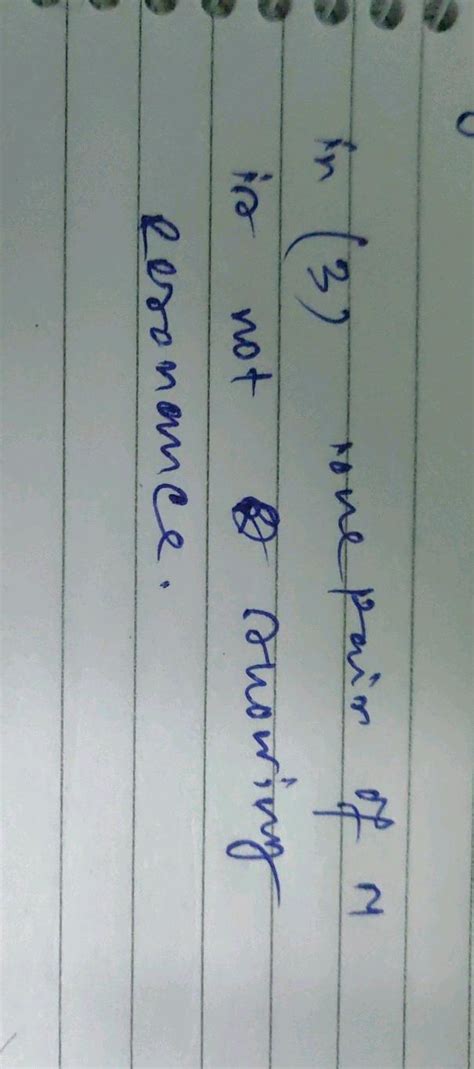 in (3) lone pair of N
is not showing
resonance.